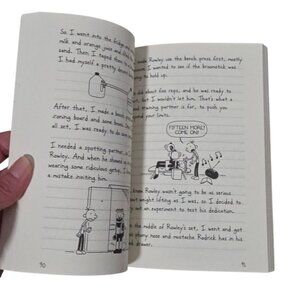 So I went into the fridge
milk and orange juice and
sand. Then I taped them
I had myself a pretty
After that, I made a bench
ironing board and some
all set, I was ready to do
I needed a spotting partner,
Rowley. And when he showed
wearing some ridiculous getup,
a mistake inviting him.
90
Rowley use the bench press first, mostly
I wanted to see if the broomstick was
to hold up.
did about five reps, and he was ready to
but I wouldn't let him. That's what a
training partner is for, to push you
your limits.
FIFTEEN MORE!
COME ON!
knew Rowley wasn't going to be as serious
weight lifting as I was, so I decided to
out an experiment to test his dedication.
the middle of Rowley's set, I went and got
phony nose and mustache Rodrick has in his
drawer.
91